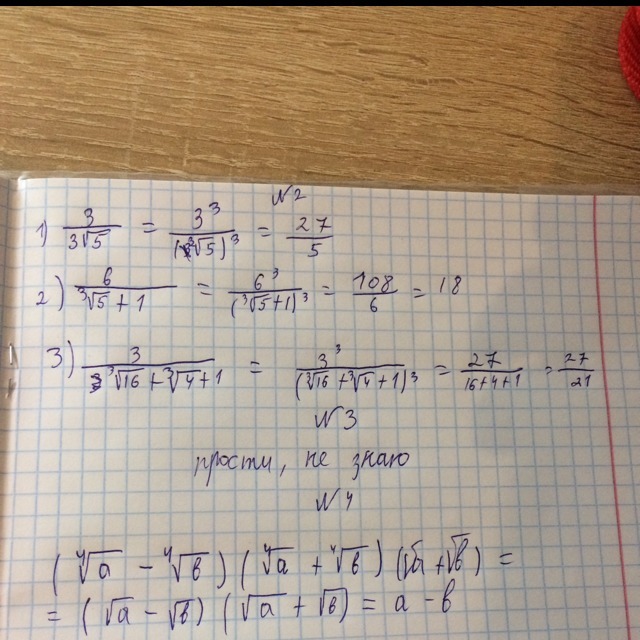 N2
1) 3/(3√5) = 3³/(³√5)³ = 27/5
2) 6/(³√5 + 1) = 6³/(³√5+1)³ = 108/6 = 18
3) 3/(³√16 + ³√4 + 1) = 3³/(³√16 + ³√4 + 1)³ = 27/(16+4+1) = 27/21
N3
прости, не знаю
N4
(⁴√a − ⁴√в)(⁴√a + ⁴√в)(√a + √в) =
= (√a − √в)(√a + √в) = a − в